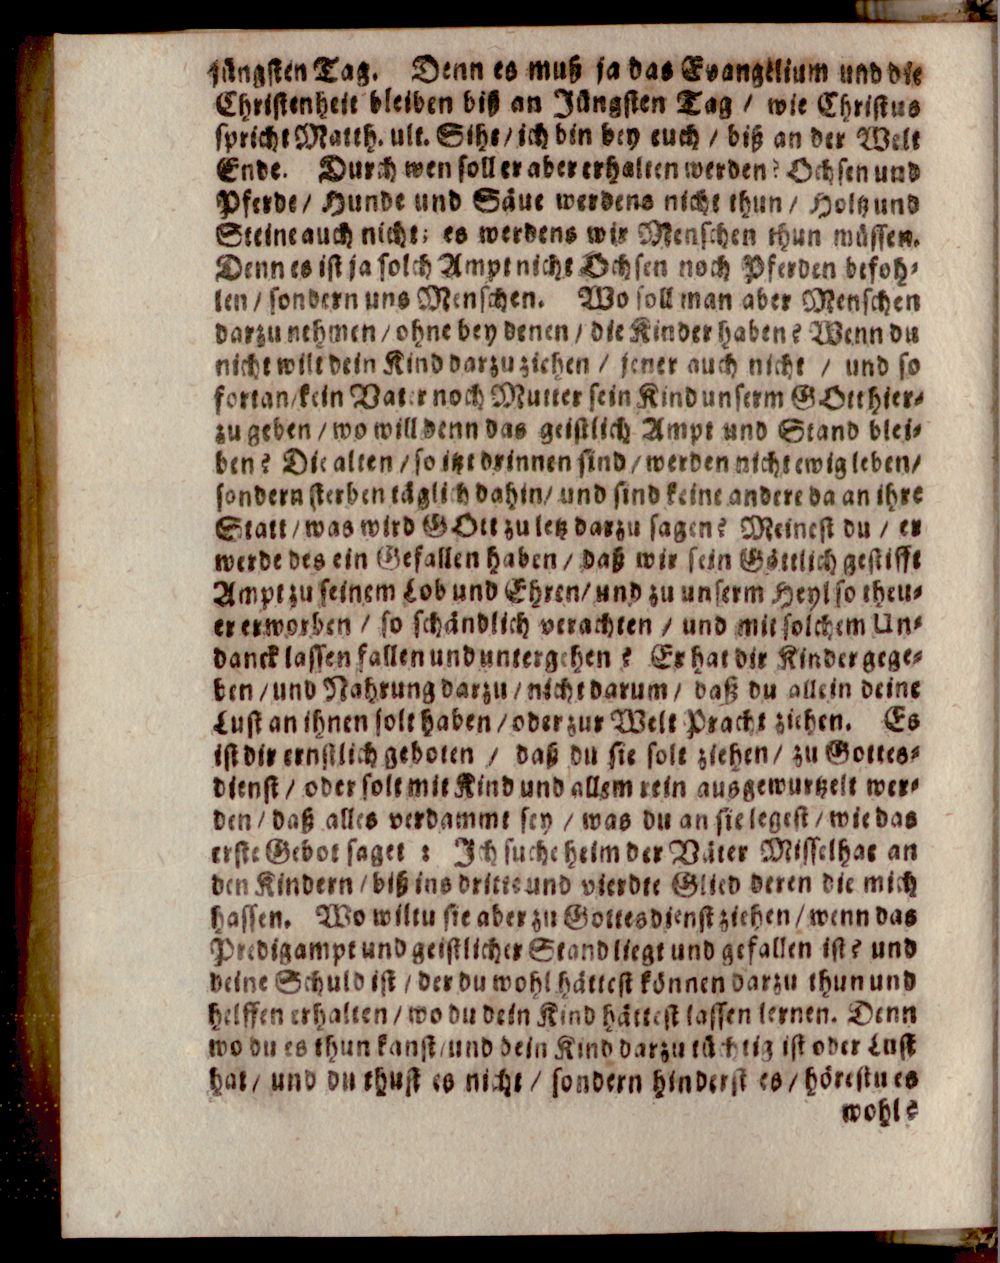 jüngsten Tag. Denn es muß ja das Evangelium und die
Christenheit bleiben biß an Jüngsten Tag / wie Christus
spricht Matth. ult. Sihe / ich bin bey euch / biß an der Welt
Ende. Durch wen soll er aber erhalten werden? Ochsen und
Pferde / Hunde und Säue werdens nicht thun / Holtz und
Steine auch nicht; es werdens wir Menschen thun müssen.
Denn es ist ja solch Ampt nicht Ochsen noch Pferden befoh-
len / sondern uns Menschen. Wo soll man aber Menschen
darzu nehmen / ohne bey denen / die Kinder haben? Wenn du
nicht wilt dein Kind darzu ziehen / jener auch nicht / und so
fortan / kein Vater noch Mutter sein Kind unserm GOtt hier-
zu geben / wo will denn das geistlich Ampt und Stand blei-
ben? Die alten / so itzt drinnen sind / werden nicht ewig leben /
sondern sterben täglich dahin / und sind keine andere da an ihre
Statt / was wird GOtt zu letz darzu sagen? Meinest du / er
werde des ein Gefallen haben / daß wir sein Göttlich gestifft
Ampt zu seinem Lob und Ehren / und zu unserm Heyl so theu-
er erworben / so schändlich verachten / und mit solchem Un-
danck lassen fallen und untergehen? Er hat dir Kinder gege-
ben / und Nahrung darzu / nicht darum / daß du allein deine
Lust an ihnen solt haben / oder zur Welt Pracht ziehen. Es
ist dir ernstlich geboten / daß du sie solt ziehen / zu Gottes-
dienst / oder solt mit Kind und allem rein ausgewurtzelt wer-
den / daß alles verdammt sey / was du an sie legest / wie das
erste Gebot saget: Ich suche heim der Väter Missethat an
den Kindern / biß ins dritte und vierdte Glied deren die mich
hassen. Wo wiltu sie aber zu Gottesdienst ziehen / wenn das
Predigampt und geistlicher Stand liegt und gefallen ist? und
deine Schuld ist / der du wohl hättest können darzu thun und
helffen erhalten / wo du dein Kind hättest lassen lernen. Denn
wo du es thun kanst / und dein Kind darzu tüchtig ist oder Lust
hat / und du thust es nicht / sondern hinderst es / hörestu es
wohl?